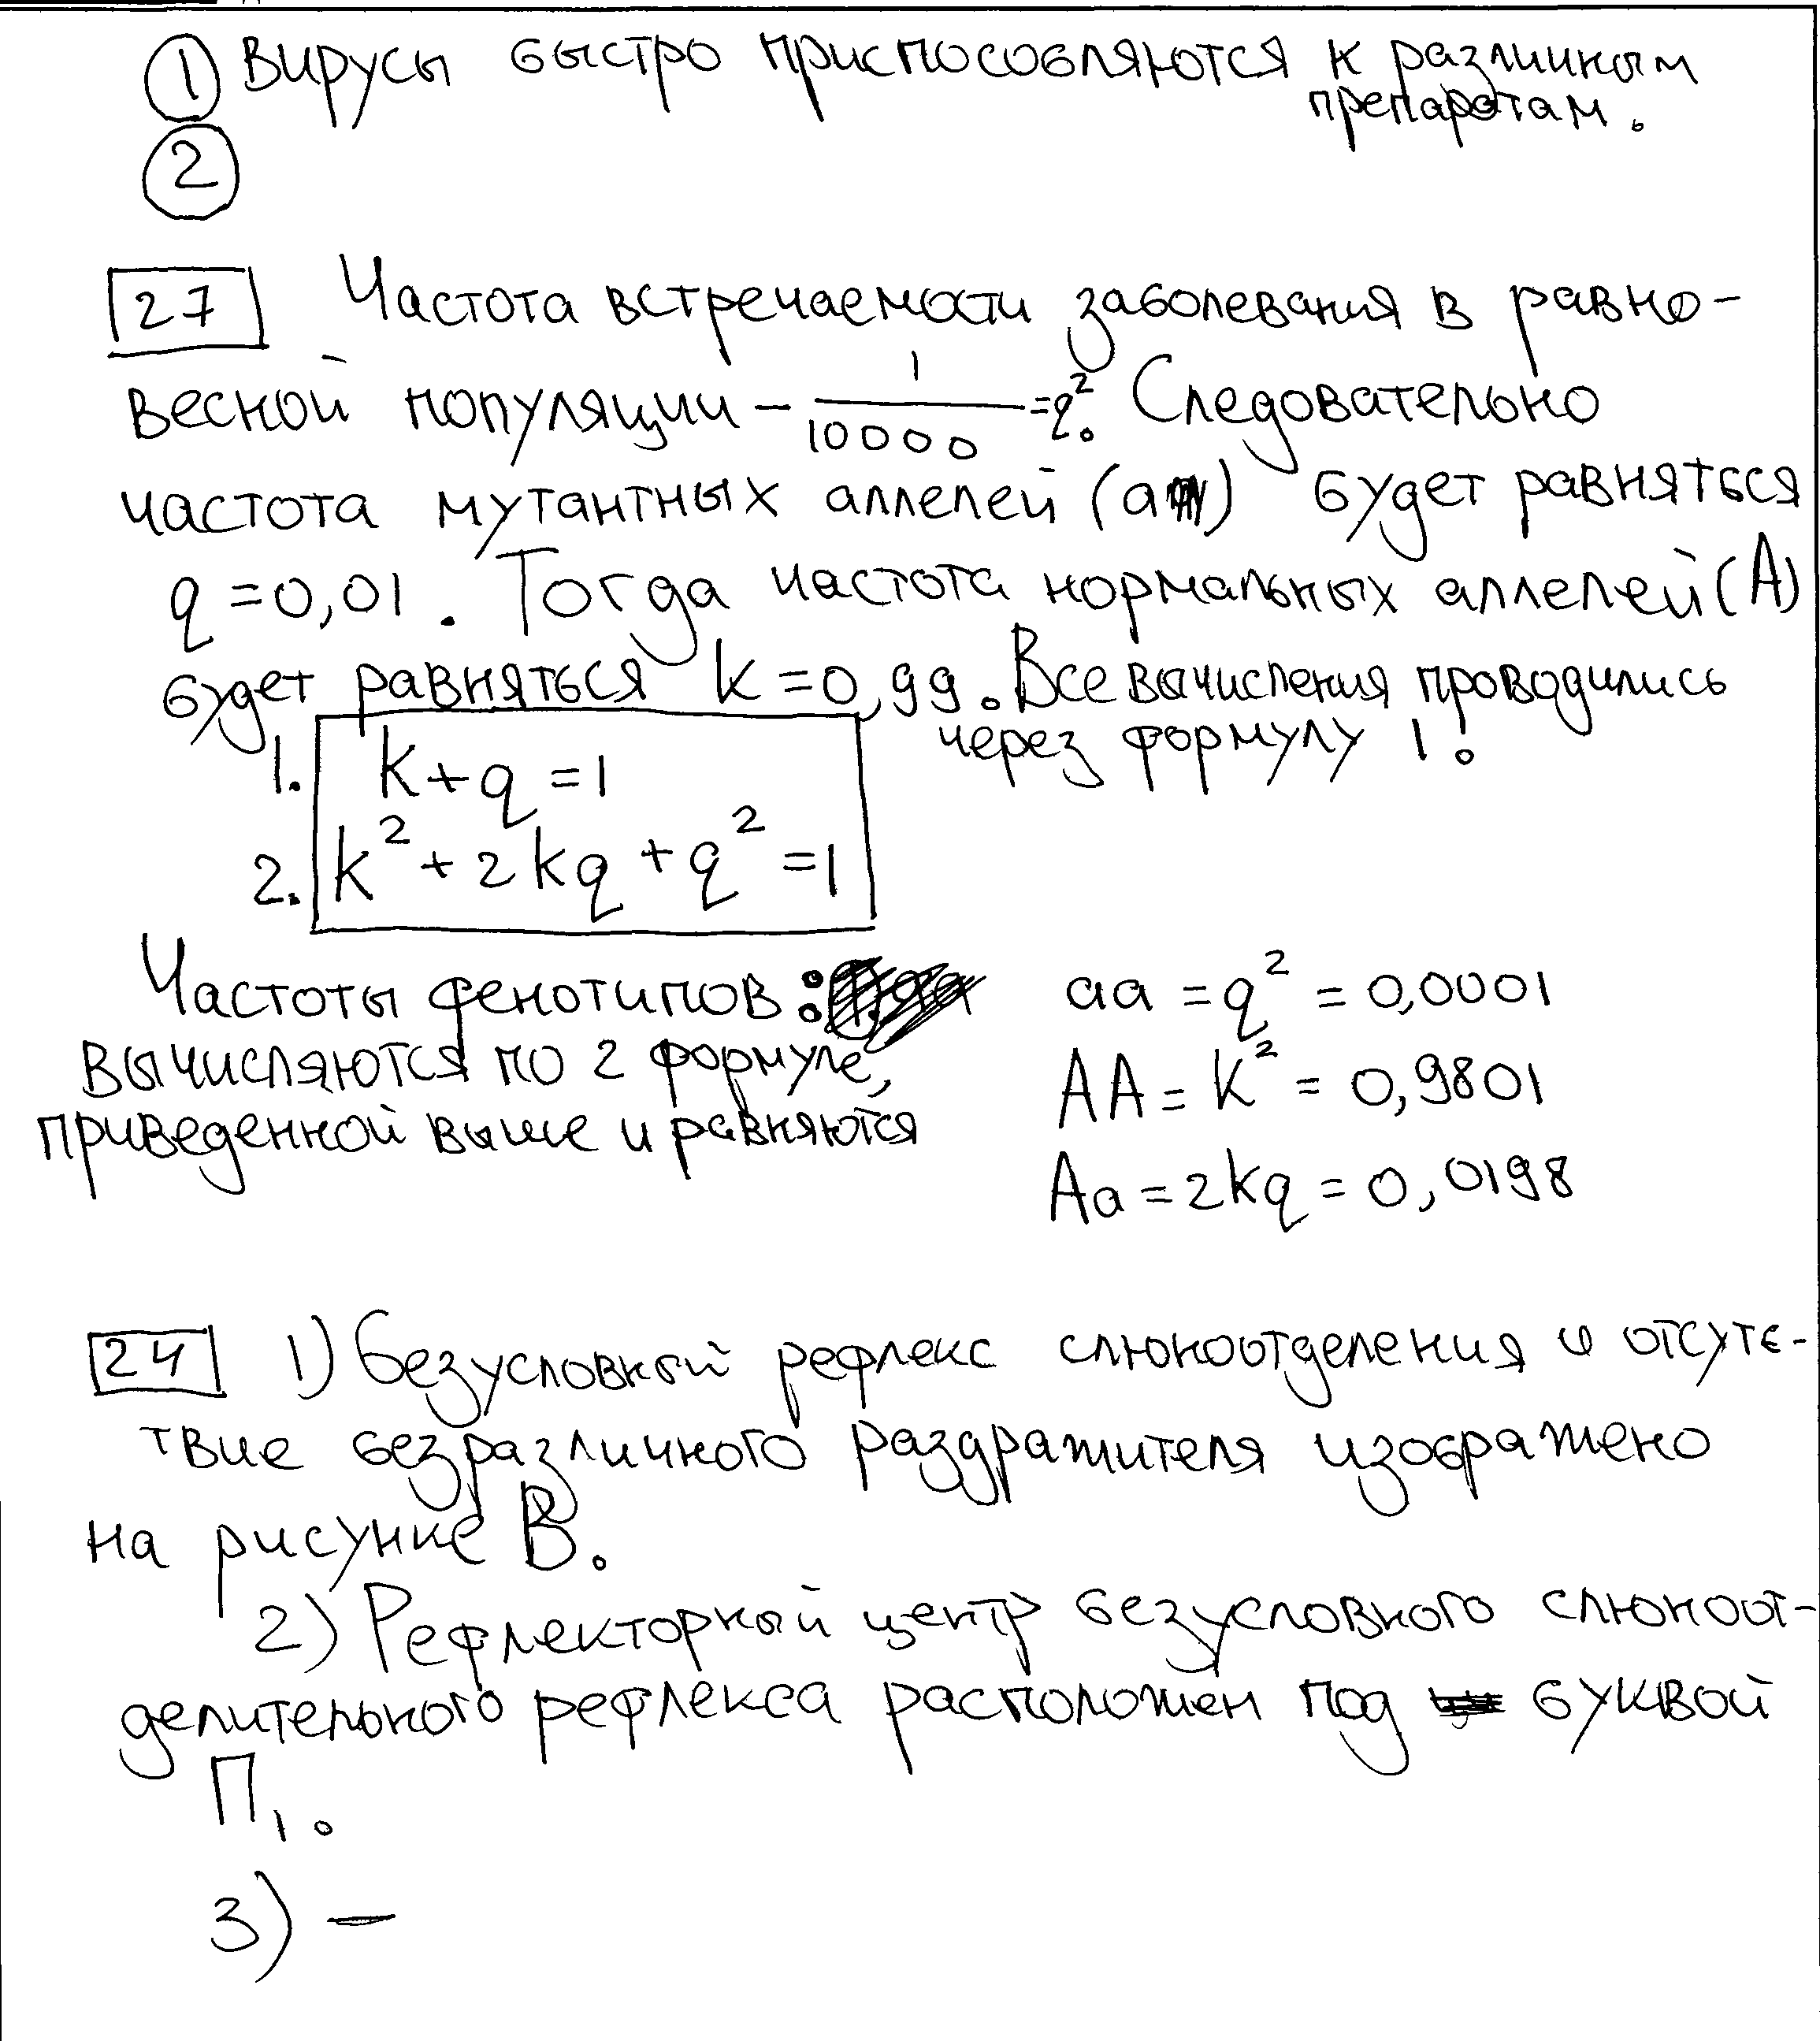 ① Вирусы быстро приспособляются к различным
препаратам.
②
27 Частота встречаемости заболевания в равно-
весной популяции - 1/10000 = q². Следовательно
частота мутантных аллелей (а) будет равняться
q = 0,01. Тогда частота нормальных аллелей (А)
будет равняться k = 0,99. Все вычисления проводились
через формулу 1.
1. k + q = 1
2. k² + 2kq + q² = 1
Частоты фенотипов:
вычисляются по 2 формуле,
приведенной выше и равняются
aa = q² = 0,0001
AA = k² = 0,9801
Aa = 2kq = 0,0198
24 1) Безусловный рефлекс слюноотделения и отсутс-
твие безразличного раздражителя изображено
на рисунке В.
2) Рефлекторный центр безусловного слюноот-
делительного рефлекса расположен под буквой
П₁.
3) —